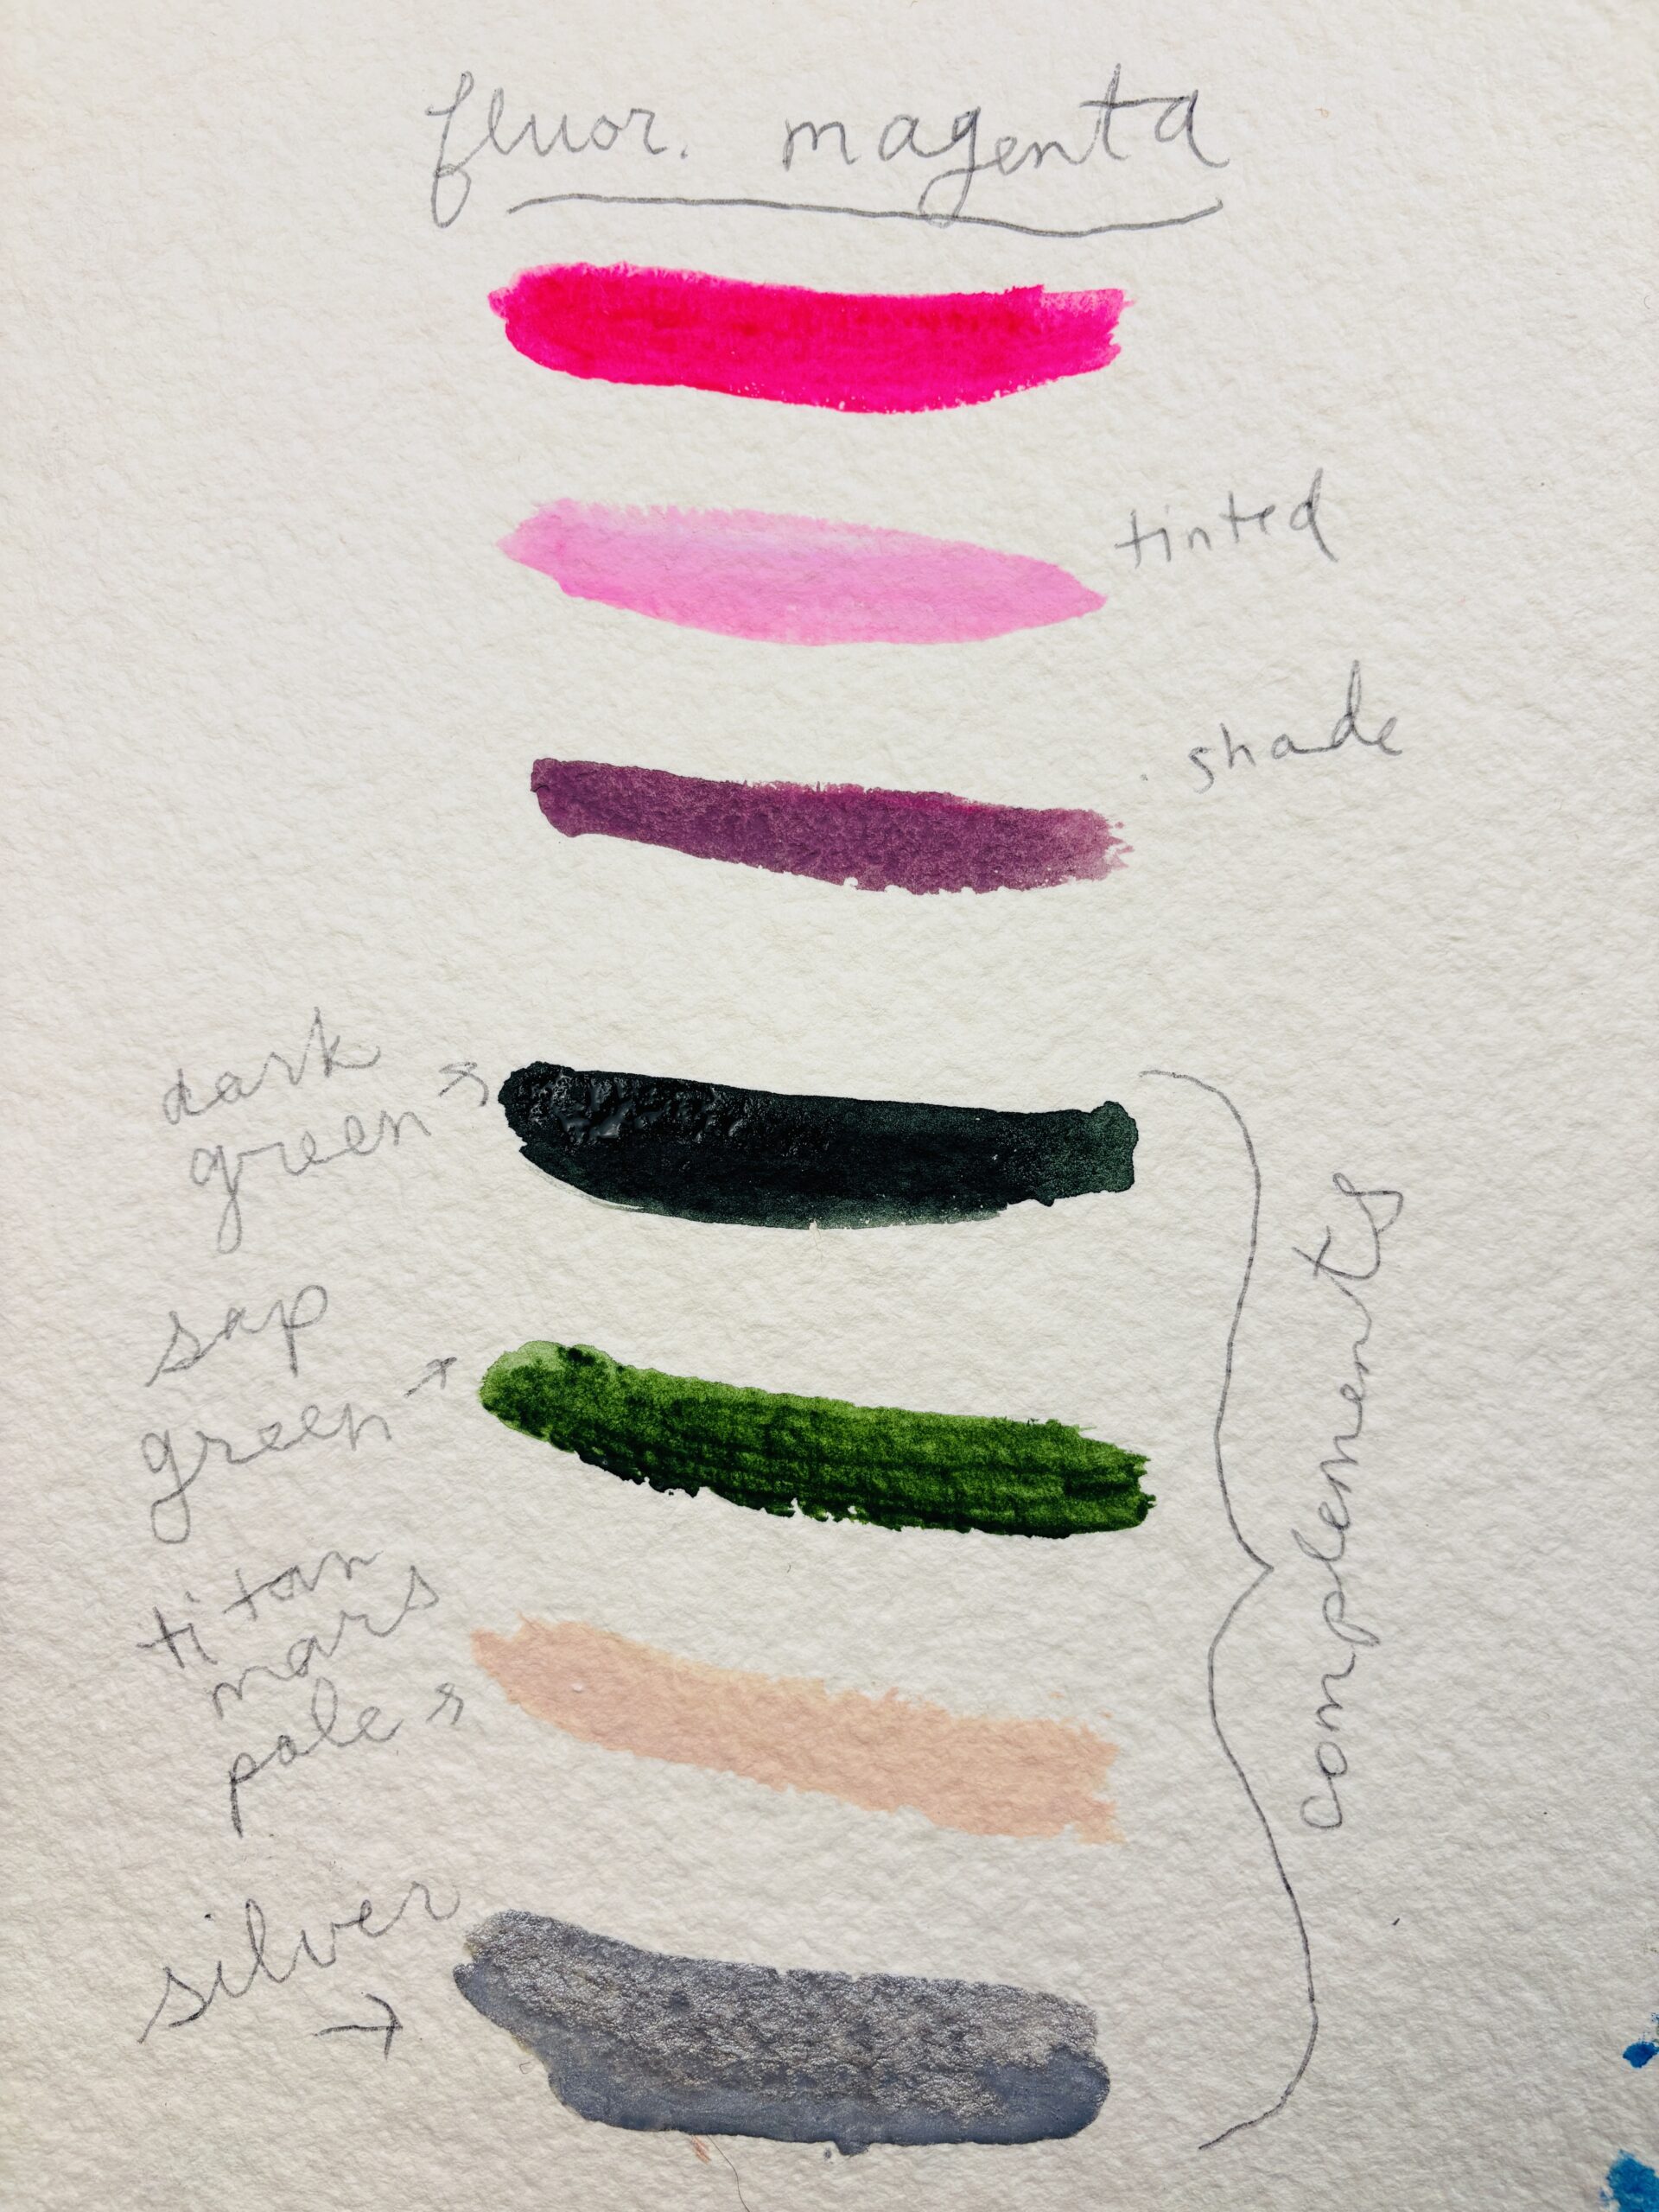 fluor. magenta
tinted
shade
dark
green
sap
green
titan
mars
pale
silver
complements